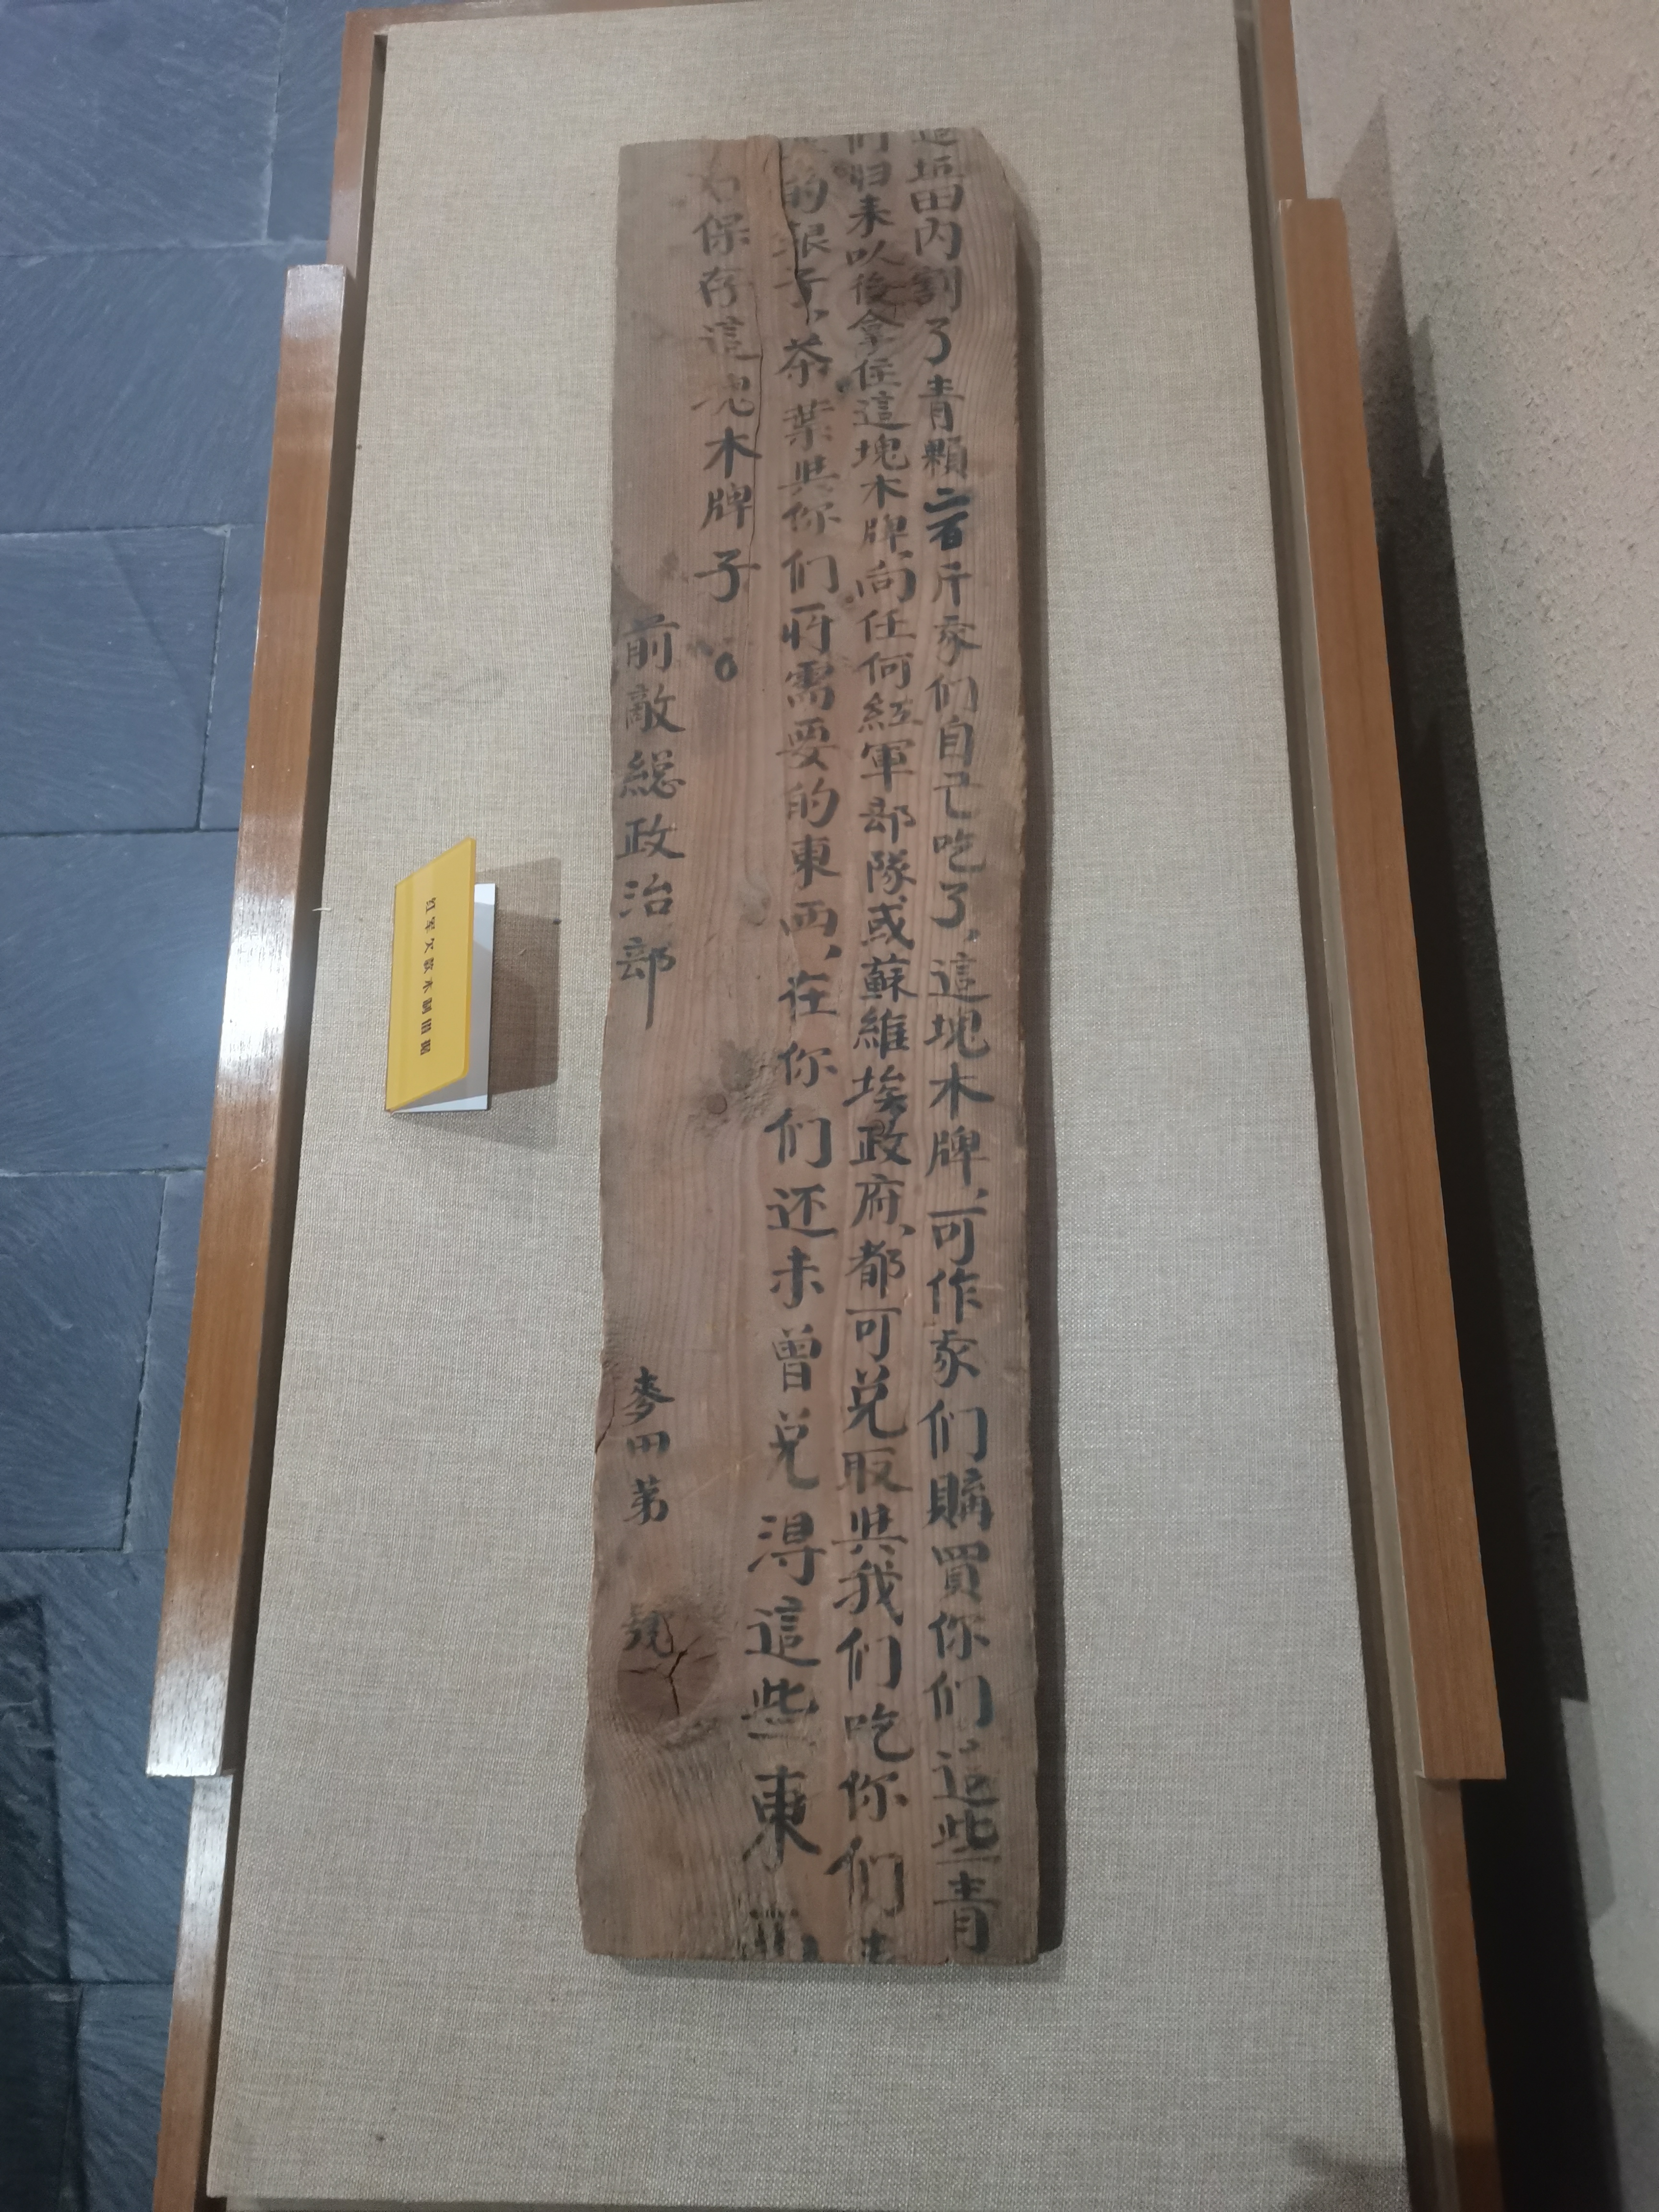 這坵田内割了青顆二百斤家们自己吃了，這塊木牌，可作家们購買你们這些青
们归来以後拿住這塊木牌，向任何紅軍部隊或蘇維埃政府、都可兑取與我们吃你们
的銀子，茶葉與你们所需要的東西，在你们还未曾兑得這些東西
保存這塊木牌子。
前敵總政治部
麥田第 號